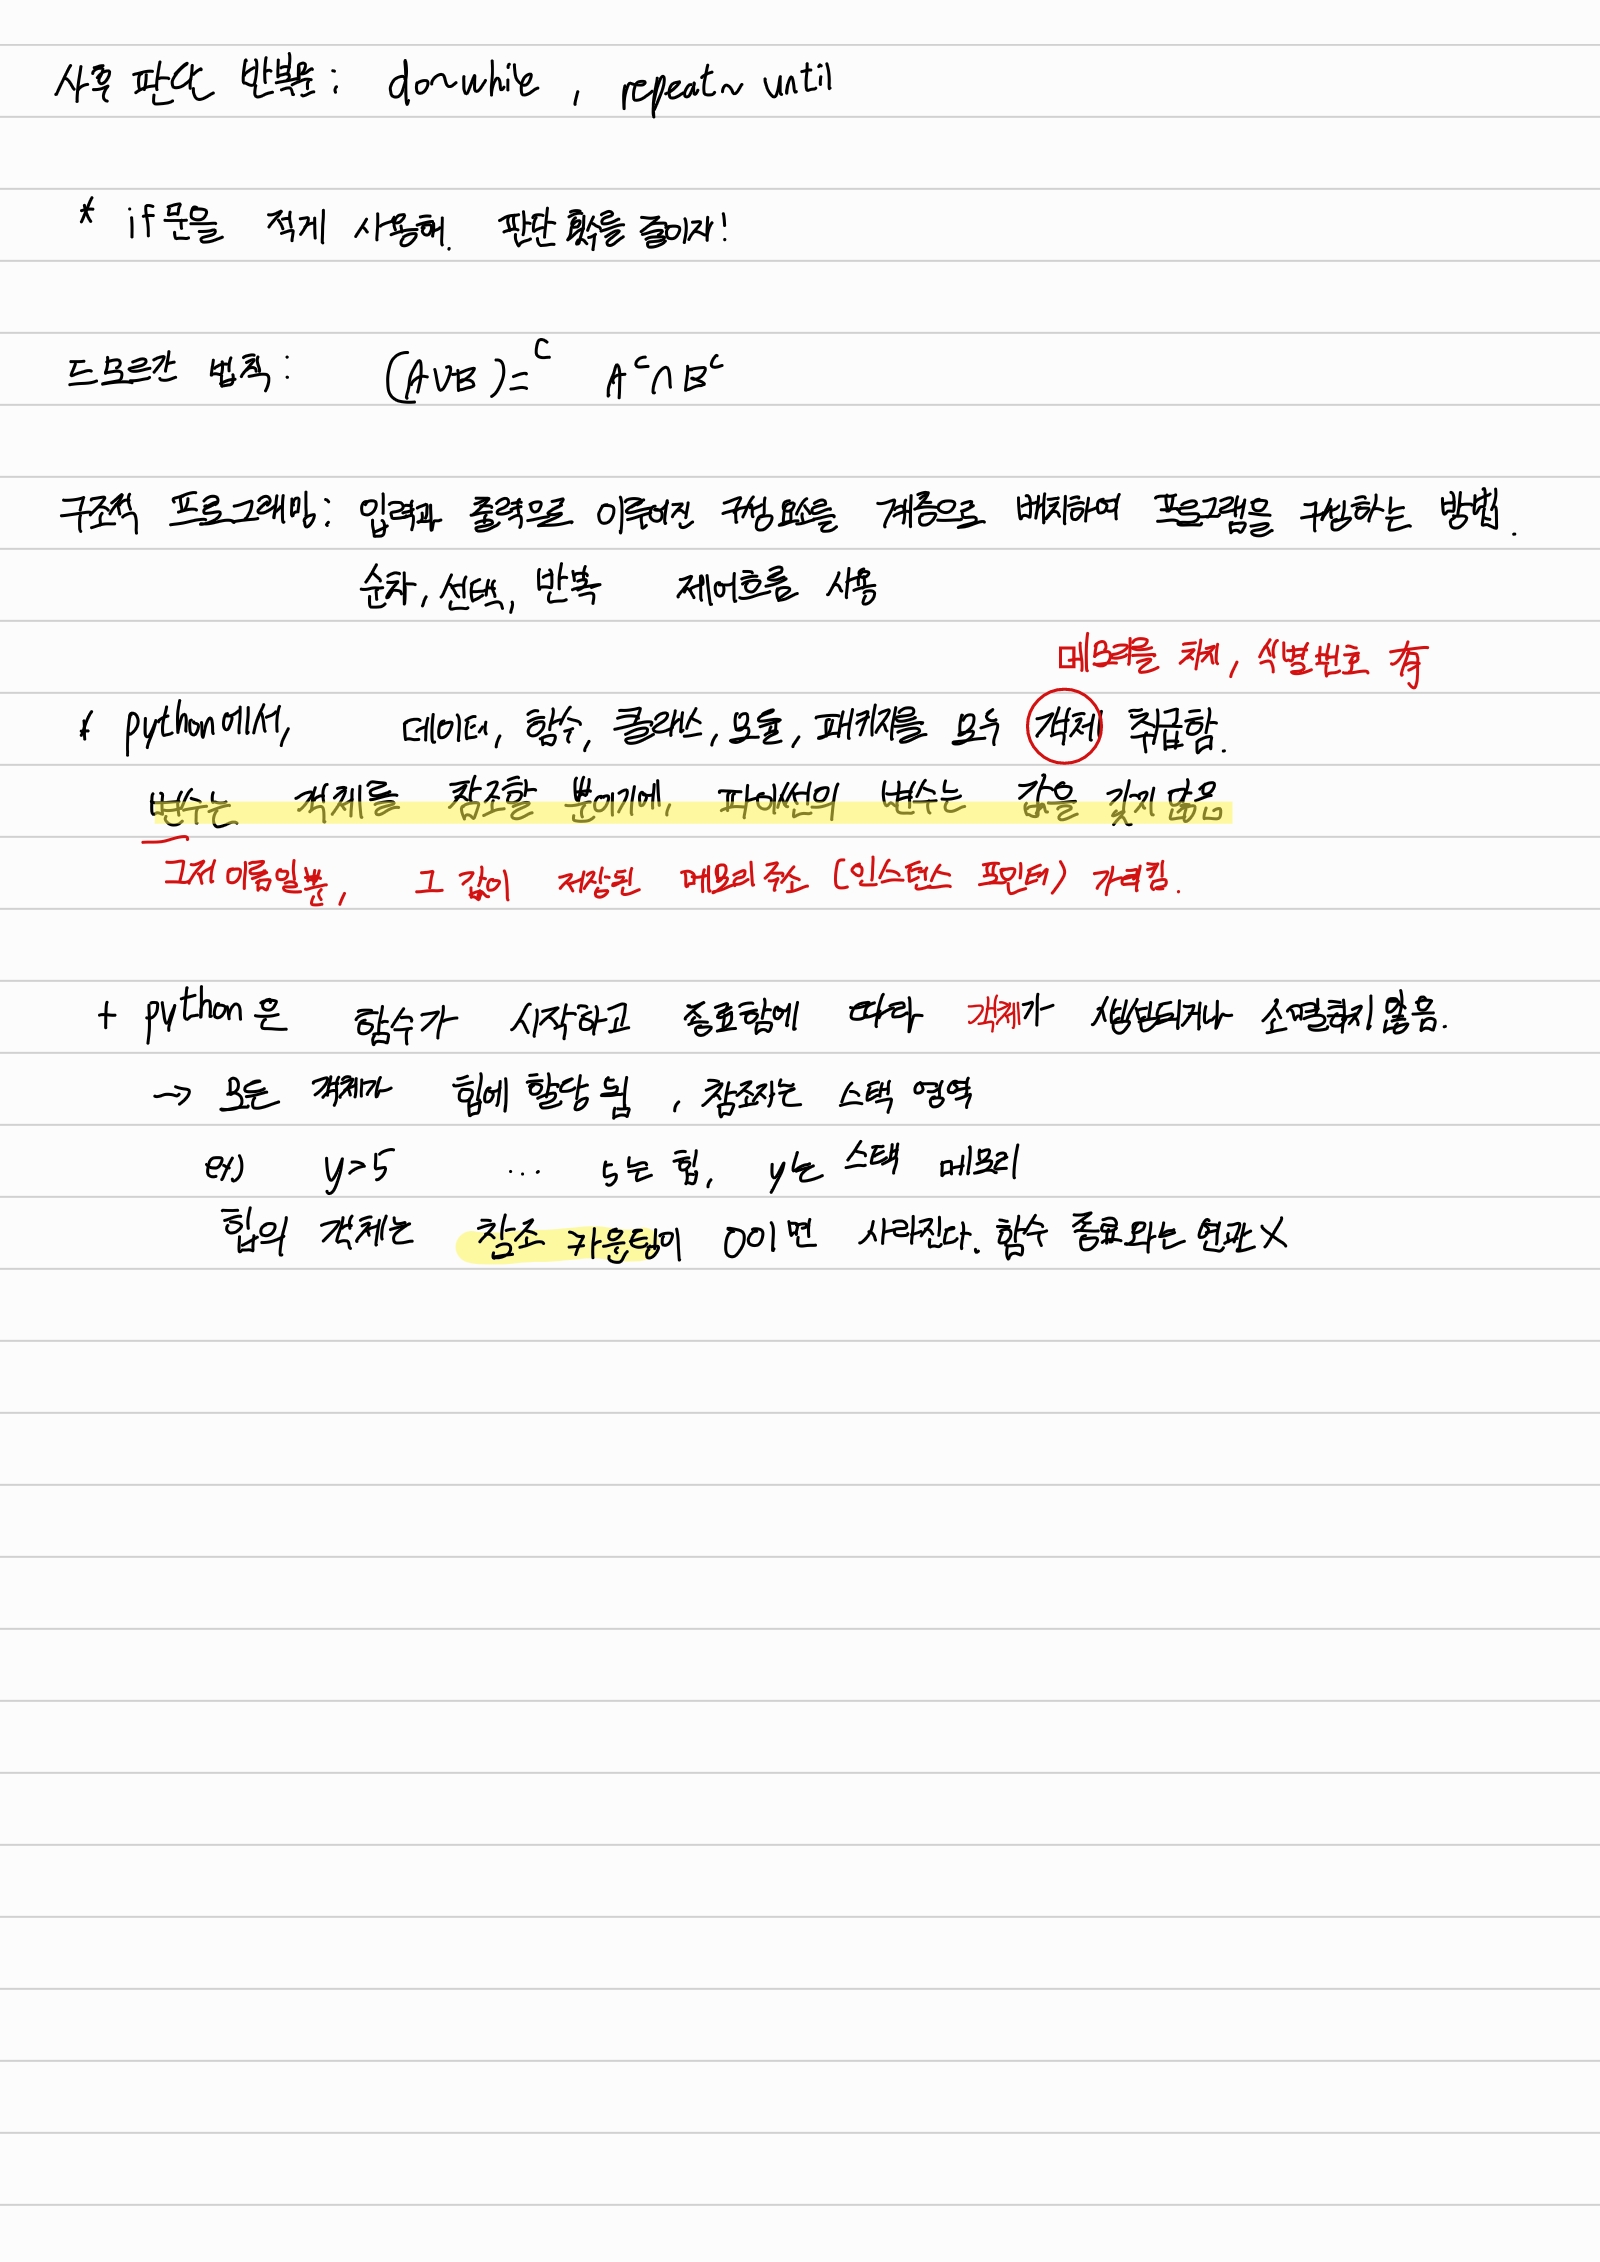 사후 판단 반복문 : do~while , repeat~ until
* if문을 적게 사용해. 판단 횟수를 줄이자!
드모르간 법칙 : (A∪B)=ᶜ Aᶜ∩Bᶜ
구조적 프로그래밍 : 입력과 출력으로 이루어진 구성 요소를 계층으로 배치하여 프로그램을 구성하는 방법.
순차, 선택, 반복 제어흐름 사용
메모리를 차지, 식별번호 有
* python에서, 데이터, 함수, 클래스, 모듈, 패키지를 모두 객체 취급함.
변수는 객체를 참조할 뿐이기에, 파이썬의 변수는 값을 갖지 않음
그저 이름일뿐, 그 값이 저장된 메모리 주소 (인스턴스 포인터) 가리킴.
+ python은 함수가 시작하고 종료함에 따라 객체가 생성되거나 소멸하지 않음.
→ 모든 객체가 힙에 할당 됨 , 참조자는 스택 영역
ex) y=5 ... 5는 힙, y는 스택 메모리
힙의 객체는 참조 카운팅이 0이면 사라진다. 함수 종료와는 연관 X